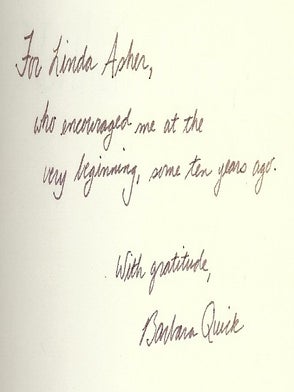 For Linda Asher,
who encouraged me at the
very beginning, some ten years ago.
With gratitude,
Barbara Quick